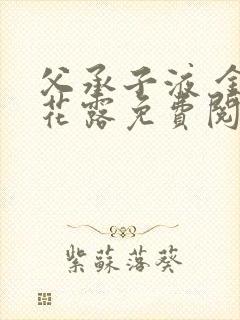 父承子液 金
花露免費閱
紫蘇落葵